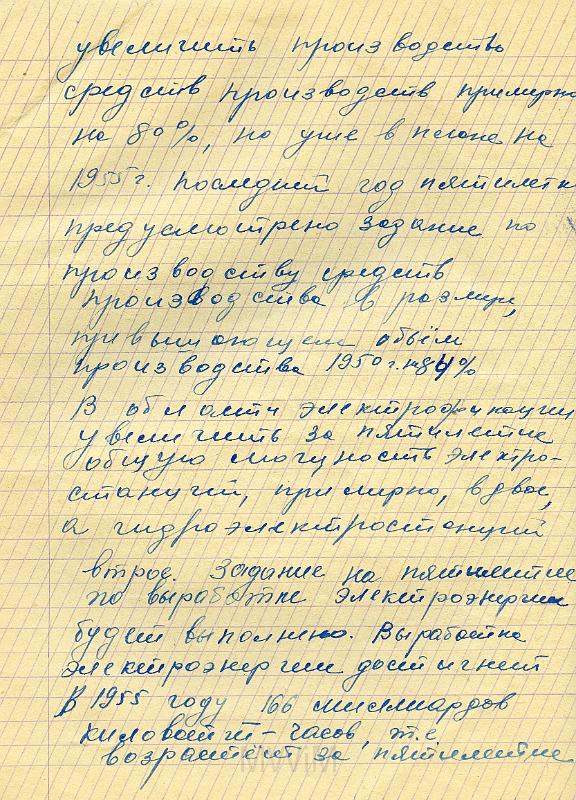 увеличить производство
средств производств примерно
на 80%, но уже в плане на
1955г. последний год пятилетк
предусмотрено задание по
производству средств
производства в размере,
превышающем объём
производства 1950г. на 84%
В области электрофикации
увеличить за пятилетие
общую мощность электро-
станций, примерно, вдвое,
а гидроэлектростанций
втрое. Задание на пятилетие
по выработке электроэнергии
будет выполнено. Выработка
электроэнергии достигнет
в 1955 году 166 миллиардов
киловатт-часов, т.е
возрастет за пятилетие